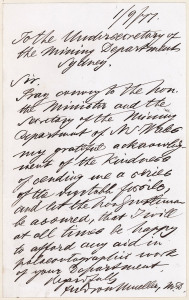 1/9/77.
To the Undersecretary of
the Mining Department
Sydney.
Sir
Pray convey to the Hon.
the Minister and the
Secretary of the Mining
Department of NS Wales
my grateful acknowledg
ment of the kindness
of sending me a series
of the fossils,
and let the Hon. gentleman
be assured, that I will
at all times be happy
to afford any aid in
palaeontographic work
of your Department.
Regardfully
Ferd von Mueller, MD